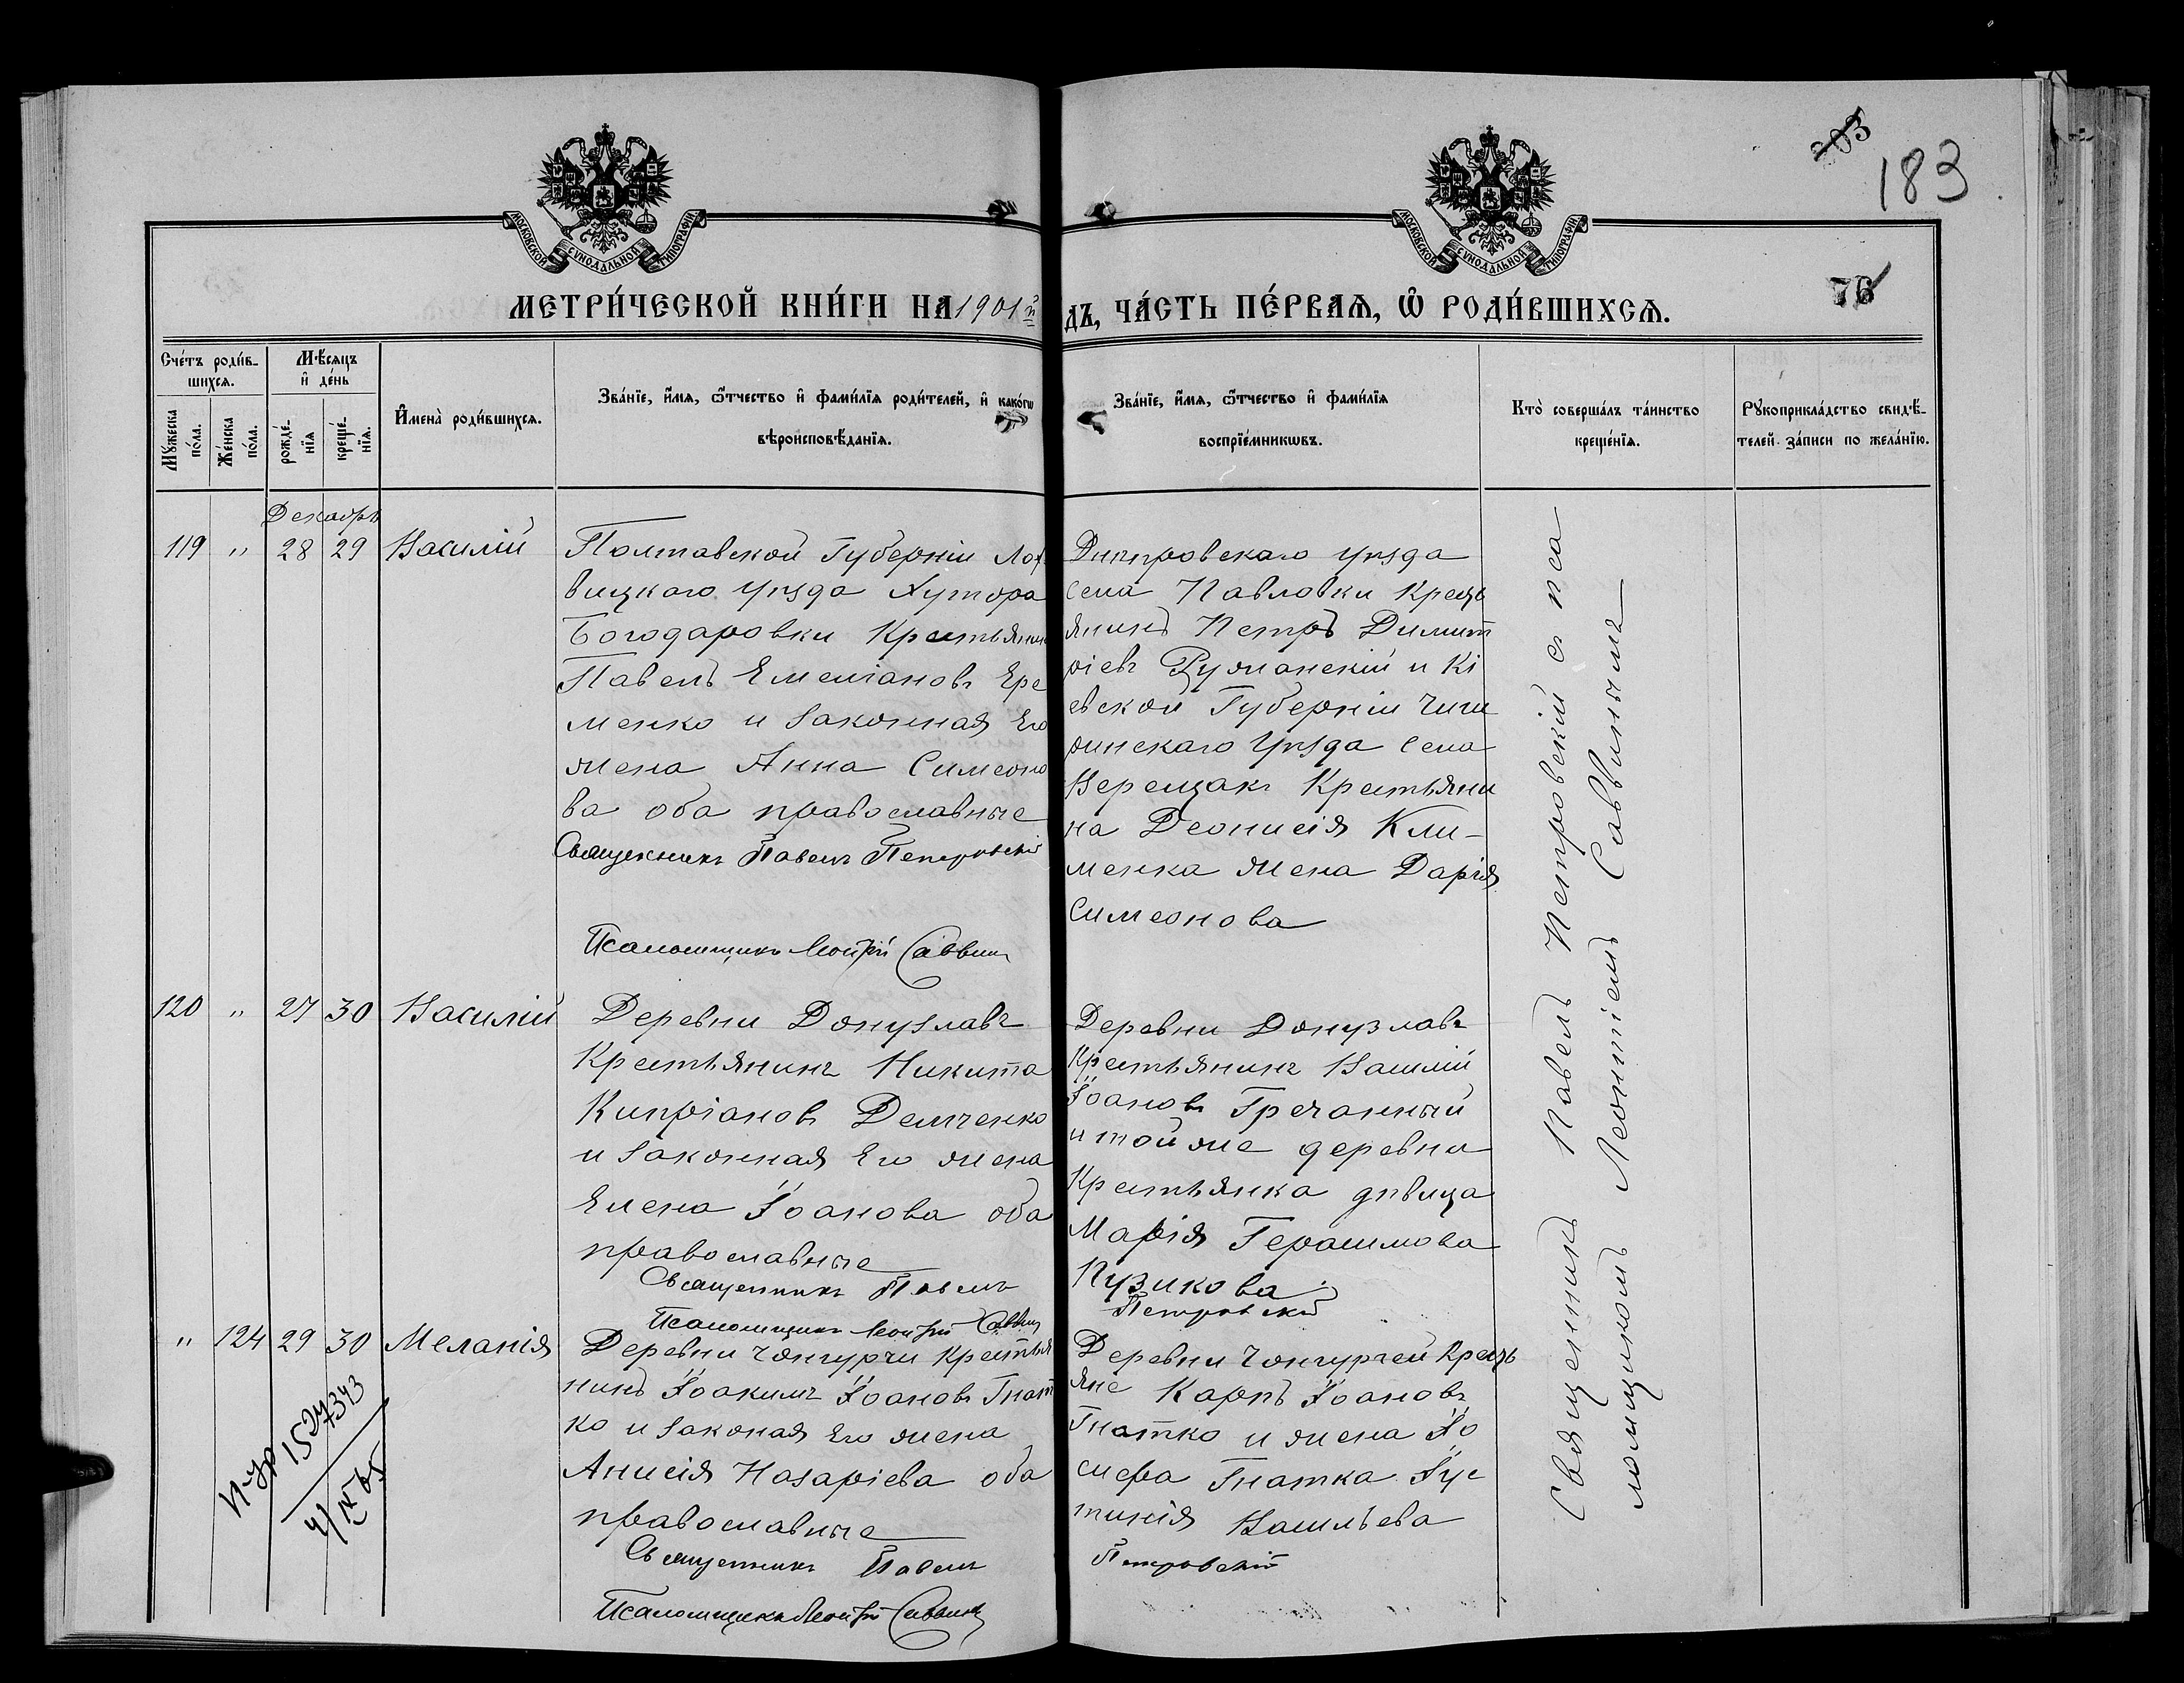 303
183
76
МОСКОВСКОЙ СѴНОДАЛЬНОЙ ТИПОГРАФІИ
МОСКОВСКОЙ СѴНОДАЛЬНОЙ ТИПОГРАФІИ
МЕТРИ́ЧЕСКОЙ КНИ́ГИ НА 1901й
ДЪ, ЧА́СТЬ ПЕ́РВАѦ, Ѡ҆ РОДИ́ВШИХСѦ.
Сче́тъ роди́в-
шихсѧ.
Мꙋ́жеска по́ла.
Же́нска по́ла.
Мѣ́сѧцъ
и҆ де́нь
рожде́-
нїѧ
креще́-
нїѧ.
И҆мена̀ роди́вшихсѧ.
Зва́нїе, и҆́мѧ, ѻ҆́тчество и҆ фами́лїѧ роди́телей, и҆ како́гѡ
вѣроисповѣ́данїѧ.
Зва́нїе, и҆́мѧ, ѻ҆́тчество и҆ фами́лїѧ
воспрїе́мникѡвъ.
Кто̀ соверша́лъ та́инство
креще́нїѧ.
Рꙋкоприкла́дство свидѣ́-
телей за́писи по жела́нїю.
Декабрь
119 " 28 29 Василій
Полтавской Губерніи Лох
вицкаго Уѣзда Хутора
Богодаровки Крестьянин
Павелъ Емеліановъ Ере
менко и законная Его
жена Анна Симеоно
ва оба православные
Священникъ Павелъ Петровскій
Псаломщикъ Леонтій Саввин
Днѣпровскаго уѣзда
села Павловки Кресть
янинъ Петръ Димит
ріевъ Руманскій и Кі
евской Губерніи Чиги
ринскаго Уѣзда Села
Верещакъ Крестьяни
на Деонисія Кли-
менка жена Дарія
Симеонова
120 " 27 30 Василій
Деревни Донузлавъ
Крестьянинъ Никита
Кипріановъ Демченко
и законная Его жена
Елена Іоанова оба
православные
Священникъ Павелъ
Псаломщикъ Леонтій Саввин
Деревни Донузлавъ
Крестьянинъ Василій
Іоановъ Гречанный
и той же деревни
Крестьянка дѣвица
Марія Герасимова
Пузикова
Петровскій
" 124 29 30 Меланія
Деревни Чонгурчи Крестья
нинъ Іоакимъ Іоановъ Гнат
ко и законая Его жена
Анисія Назаріева оба
православные
Священникъ Павелъ
Псаломщикъ Леонтій Саввинъ
Деревни Чонгурчей Кресть
яне Карпъ Іоановъ
Гнатко и жена Іо
сифа Гнатка Іус
тинія Васильева
Петровскій
Священникъ Павелъ Петровскій съ пса
ломщикомъ Леонтіемъ Саввинымъ
1527343